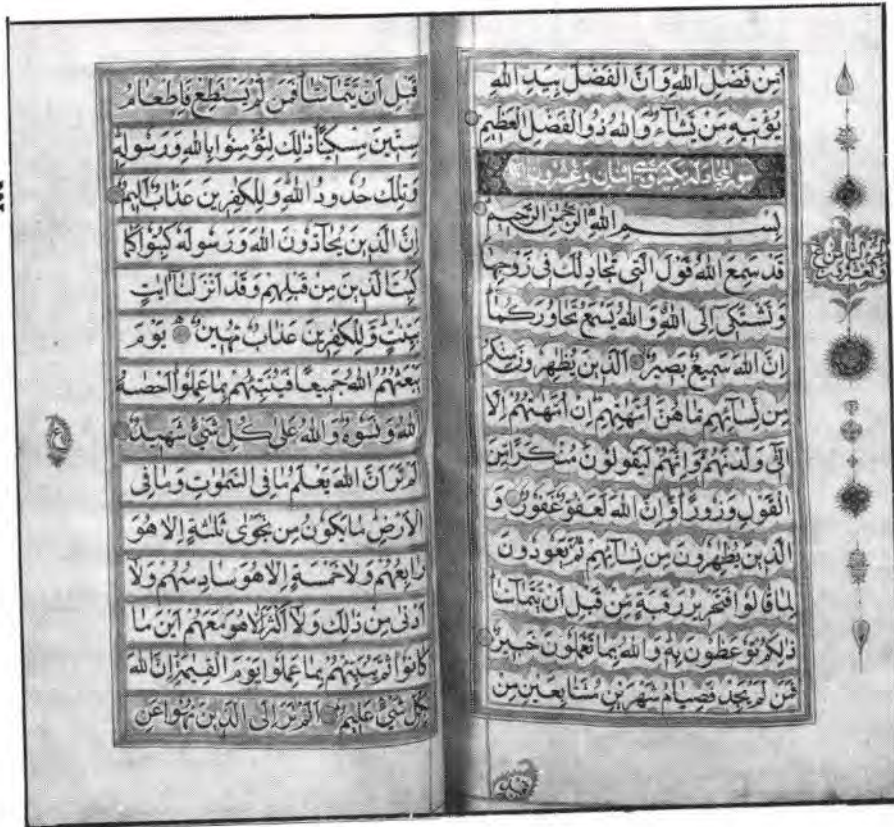 مِّن فَضْلِ اللّٰهِ وَاَنَّ الْفَضْلَ بِيَدِ اللّٰهِ
يُؤْتِيهِ مَنْ يَشَآءُ وَاللّٰهُ ذُو الْفَضْلِ الْعَظِيمِ
سورة المجادلة وهي اثنان وعشرون
بِسْمِ اللّٰهِ الرَّحْمٰنِ الرَّحِيمِ
قَدْ سَمِعَ اللّٰهُ قَوْلَ الَّتِي تُجَادِلُكَ فِي زَوْجِهَا
وَتَشْتَكِىٓ اِلَى اللّٰهِ وَاللّٰهُ يَسْمَعُ تَحَاوُرَكُمَا
اِنَّ اللّٰهَ سَمِيعٌ بَصِيرٌ اَلَّذِينَ يُظٰهِرُونَ مِنْكُمْ
مِنْ نِسَآئِهِمْ مَا هُنَّ اُمَّهٰتِهِمْ اِنْ اُمَّهٰتُهُمْ اِلَّا
الّٰٓئِى وَلَدْنَهُمْ وَاِنَّهُمْ لَيَقُولُونَ مُنْكَرًا مِّنَ
الْقَوْلِ وَزُورًا وَّاِنَّ اللّٰهَ لَعَفُوٌّ غَفُورٌ وَ
الَّذِينَ يُظٰهِرُونَ مِنْ نِسَآئِهِمْ ثُمَّ يَعُودُونَ
لِمَا قَالُوا فَتَحْرِيرُ رَقَبَةٍ مِّنْ قَبْلِ اَنْ يَّتَمَآسَّا
ذٰلِكُمْ تُوعَظُونَ بِهٖ وَاللّٰهُ بِمَا تَعْمَلُونَ خَبِيرٌ
فَمَنْ لَمْ يَجِدْ فَصِيَامُ شَهْرَيْنِ مُتَتَابِعَيْنِ مِنْ
قَبْلِ اَنْ يَّتَمَآسَّا فَمَنْ لَمْ يَسْتَطِعْ فَاِطْعَامُ
سِتِّينَ مِسْكِينًا ذٰلِكَ لِتُؤْمِنُوا بِاللّٰهِ وَرَسُولِهٖ
وَتِلْكَ حُدُودُ اللّٰهِ وَلِلْكٰفِرِينَ عَذَابٌ اَلِيمٌ
اِنَّ الَّذِينَ يُحَآدُّونَ اللّٰهَ وَرَسُولَهٗ كُبِتُوا كَمَا
كُبِتَ الَّذِينَ مِنْ قَبْلِهِمْ وَقَدْ اَنْزَلْنَآ اٰيٰتٍ
بَيِّنٰتٍ وَلِلْكٰفِرِينَ عَذَابٌ مُّهِينٌ يَوْمَ
يَبْعَثُهُمُ اللّٰهُ جَمِيعًا فَيُنَبِّئُهُمْ بِمَا عَمِلُوا اَحْصٰىهُ
اللّٰهُ وَنَسُوهُ وَاللّٰهُ عَلٰى كُلِّ شَىْءٍ شَهِيدٌ
اَلَمْ تَرَ اَنَّ اللّٰهَ يَعْلَمُ مَا فِي السَّمٰوٰتِ وَمَا فِى
الْاَرْضِ مَا يَكُونُ مِنْ نَجْوٰى ثَلٰثَةٍ اِلَّا هُوَ
رَابِعُهُمْ وَلَا خَمْسَةٍ اِلَّا هُوَ سَادِسُهُمْ وَلَآ
اَدْنٰى مِنْ ذٰلِكَ وَلَآ اَكْثَرَ اِلَّا هُوَ مَعَهُمْ اَيْنَ مَا
كَانُوا ثُمَّ يُنَبِّئُهُمْ بِمَا عَمِلُوا يَوْمَ الْقِيٰمَةِ اِنَّ اللّٰهَ
بِكُلِّ شَىْءٍ عَلِيمٌ اَلَمْ تَرَ اِلَى الَّذِينَ نُهُوا عَنِ